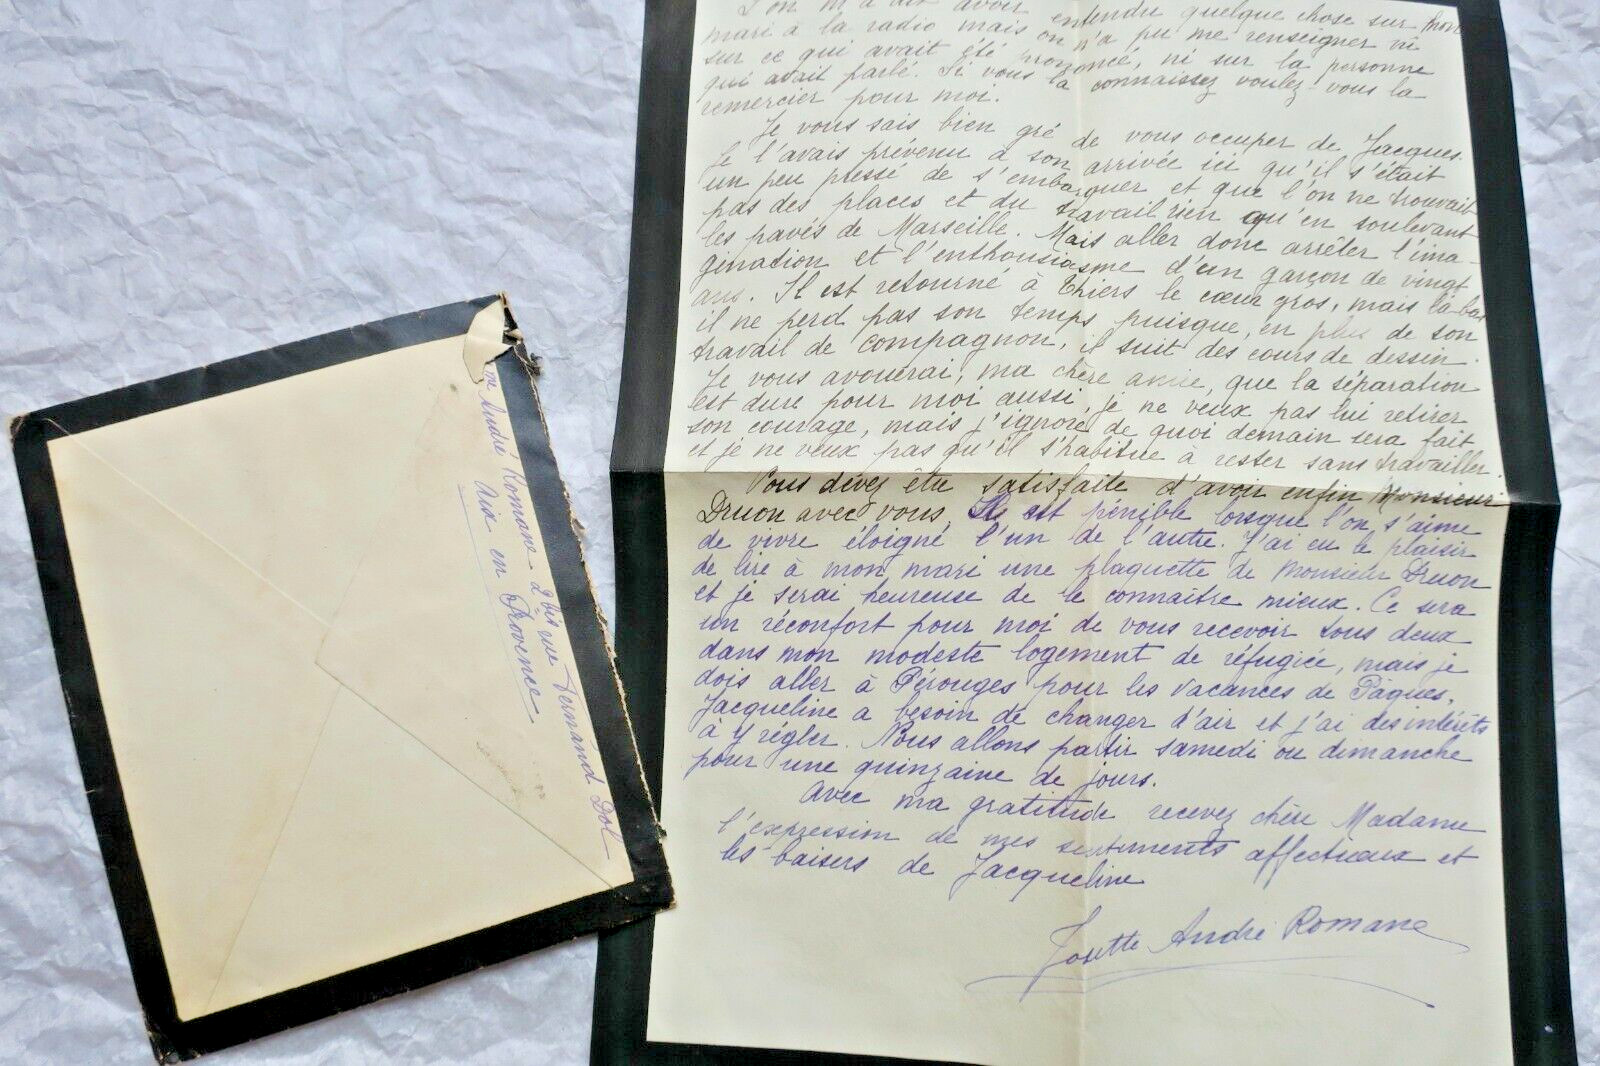 l'on m'a dit avoir entendu quelque chose sur mon
mari à la radio mais on n'a pu me renseigner ni
sur ce qui avait été prononcé, ni sur la personne
qui avait parlé. Si vous la connaissez voulez-vous la
remercier pour moi.
Je vous sais bien gré de vous occuper de Jacques.
Je l'avais prévenu à son arrivée ici qu'il s'était
un peu pressé de s'embarquer et que l'on ne trouvait
pas des places et du travail rien qu'en soulevant
les pavés de Marseille. Mais aller donc arrêter l'ima-
gination et l'enthousiasme d'un garçon de vingt
ans. Il est retourné à Thiers le cœur gros, mais là-bas
il ne perd pas son temps puisque, en plus de son
travail de compagnon, il suit des cours de dessin.
Je vous avouerai, ma chère amie, que la séparation
est dure pour moi aussi, je ne veux pas lui retirer
son courage, mais j'ignore de quoi demain sera fait
et je ne veux pas qu'il s'habitue à rester sans travailler.
Vous devez être satisfaite d'avoir enfin Monsieur
Druon avec vous. Il est pénible lorsque l'on s'aime
de vivre éloigné l'un de l'autre. J'ai eu le plaisir
de lire à mon mari une plaquette de Monsieur Druon
et je serai heureuse de le connaître mieux. Ce sera
un réconfort pour moi de vous recevoir tous deux
dans mon modeste logement de réfugiée, mais je
dois aller à Pérouges pour les vacances de Pâques.
Jacqueline a besoin de changer d'air et j'ai des intérêts
à y régler. Nous allons partir samedi ou dimanche
pour une quinzaine de jours.
Avec ma gratitude recevez chère Madame
l'expression de mes sentiments affectueux et
les baisers de Jacqueline
Josette André Romane
me André Romane 2 bis rue Fernand Dol
Aix en Provence